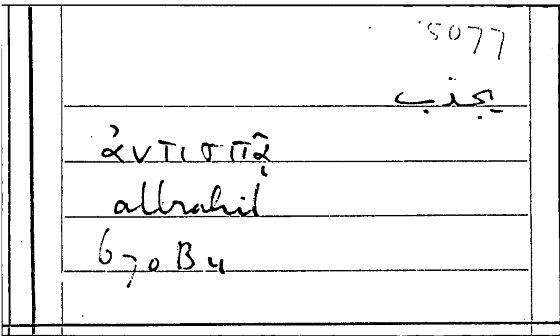 5077
يجذب
ἀντισπᾷ
attrahit
670 B 4